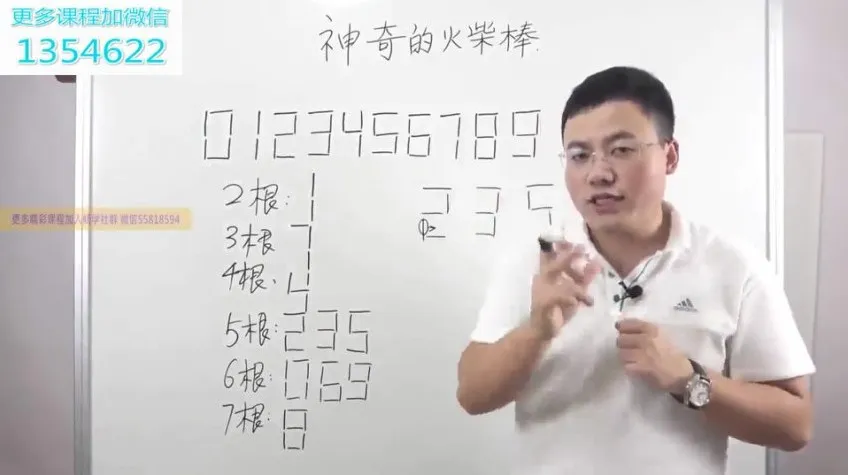 更多课程加微信
1354622
神奇的火柴棒
0123456789
2根: 1
235
更多精彩课程加入研学社群 微信55818594
3根 7
4根. 4
5根: 235
6根: 069
7根: 8
adidas